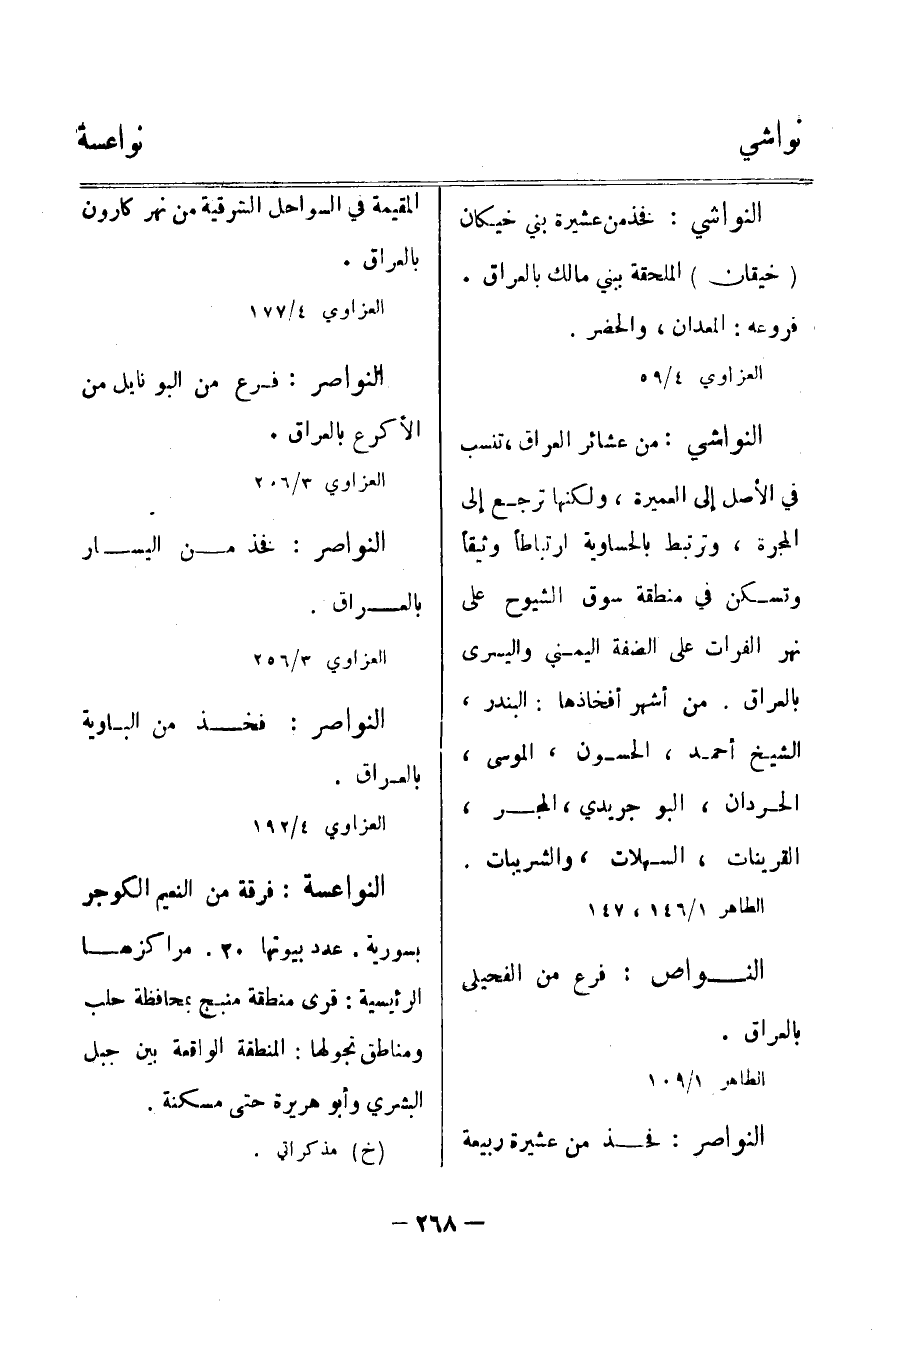 نواشي
نواعسة
النواشي : فخذ من عشيرة بني خيكان
( خيقان ) الملحقة ببني مالك بالعراق .
فروعه : المعدان ، والحضر .
العزاوي ٥٩/٤
النواشي : من عشائر العراق ، تنسب
في الأصل إلى العميرة ، ولكنها ترجع إلى
المجرة ، وترتبط بالحساوية ارتباطاً وثيقاً
وتسكن في منطقة سوق الشيوح على
نهر الفرات على الضفة اليمنى واليسرى
بالعراق . من أشهر أفخاذها : البندر ،
الشيخ أحمد ، الحسون ، الموسى ،
الحردان ، البو جريدي ، المجر ،
القرينات ، السهلات ، والشريبات .
الطاهر ١٤٦/١ ، ١٤٧
النواص : فرع من الفحيلى
بالعراق .
الطاهر ١٠٩/١
النواصر : فخذ من عشيرة ربيعة
المقيمة في السواحل الشرقية من نهر كارون
بالعراق .
العزاوي ١٧٧/٤
النواصر : فرع من البو نايل من
الأكرع بالعراق .
العزاوي ٢٠٦/٣
النواصر : فخذ من اليسار
بالعراق .
العزاوي ٢٥٦/٣
النواصر : فخذ من الباوية
بالعراق .
العزاوي ١٩٢/٤
النواعسة : فرقة من النعيم الكوجر
بسورية . عدد بيوتها ٢٠ . مراكزها
الرئيسية : قرى منطقة منبج بمحافظة حلب
ومناطق تجولها : المنطقة الواقعة بين جبل
البشري وأبو هريرة حتى مسكنة .
(خ) مذكراتي .
— ٢٦٨ —